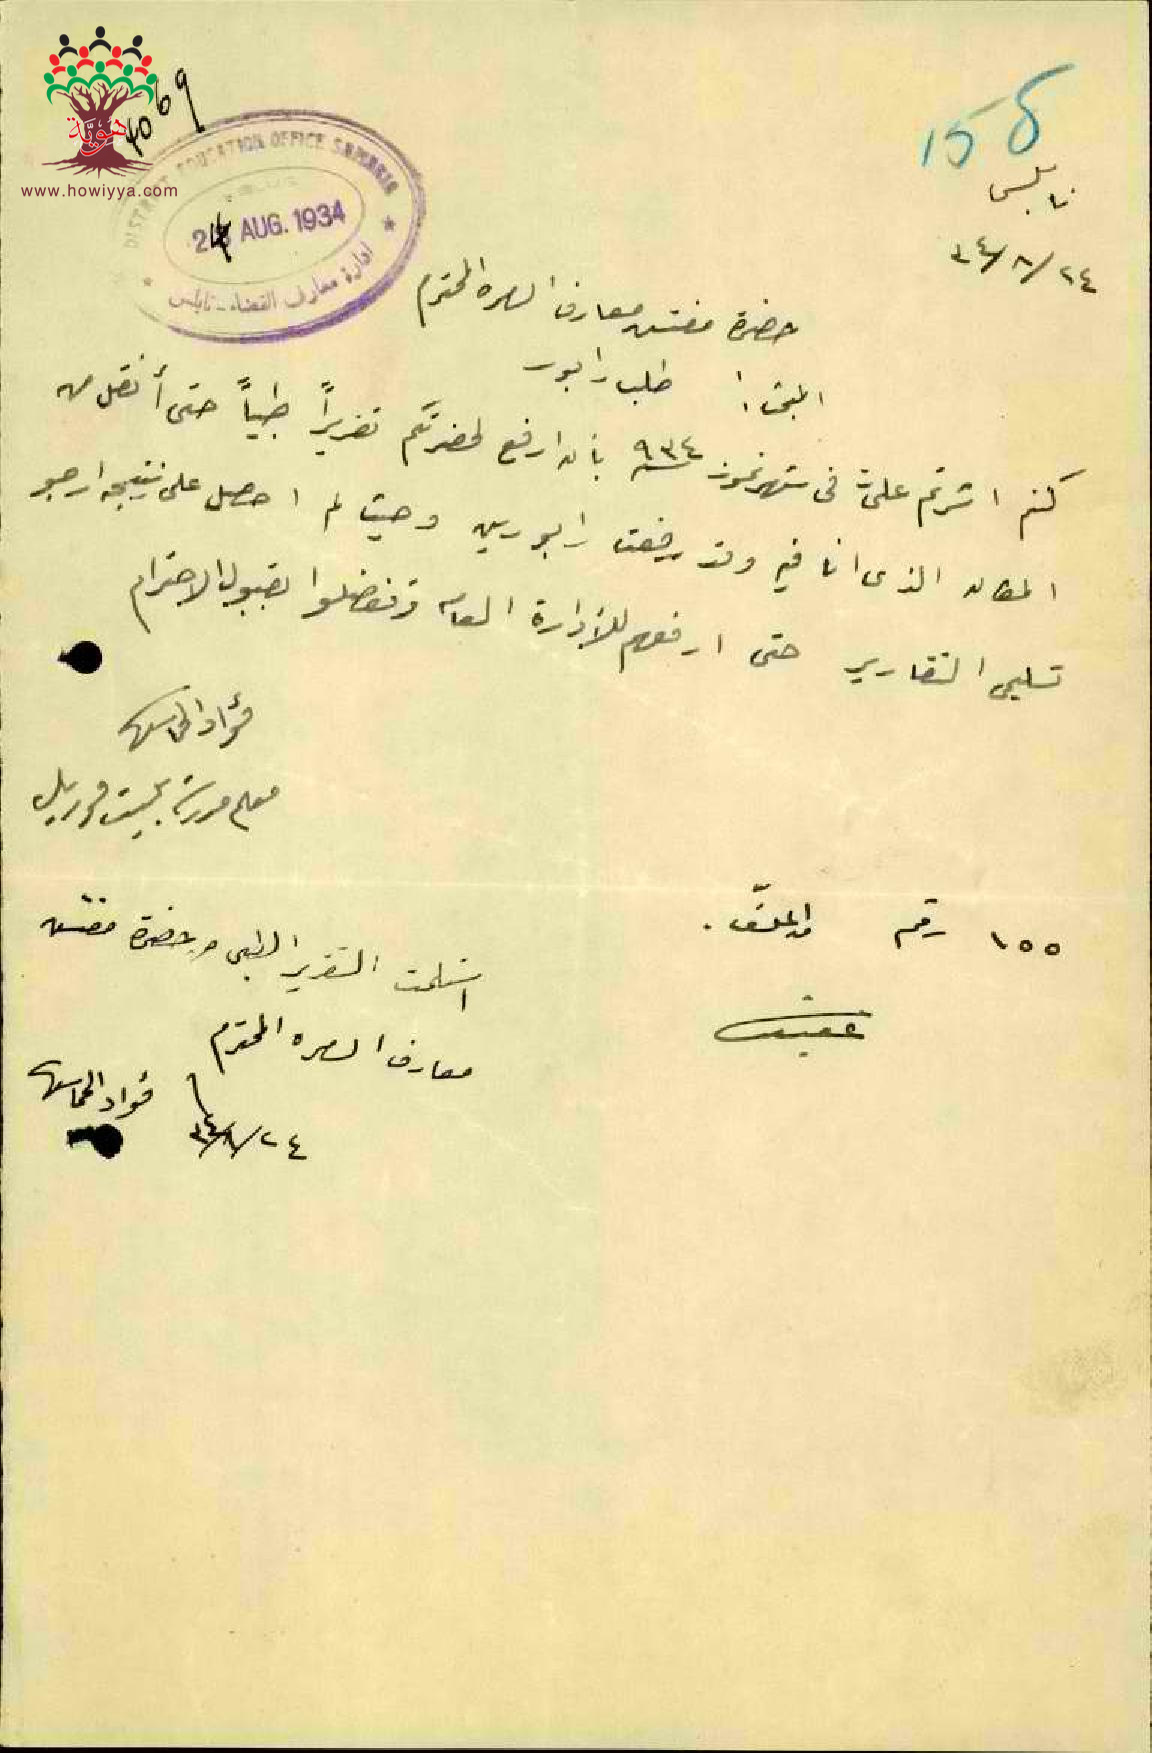 هويّة
www.howiyya.com
4069
DISTRICT EDUCATION OFFICE SAMARIA
24 AUG. 1934
ادارة معارف القضاء - نابلس
155
نابلس
٣٤/٨/٢٤
حضرة مفتش معارف اللواء المحترم
المبحث: طلب رابور
كنتم اشرتم عليّ في شهر تموز سنة ٩٣٤ بأن ارفع لحضرتكم تقريراً طبياً حتى أنقل من
المكان الذي انا فيه وقد رفعت رابورين وحيث لم احصل على نتيجة ارجو
تسليمي التقارير حتى ارفعهم للأدارة العامه وتفضلوا بقبول الاحترام
فؤاد
معلم مدرسة
١٥٥ رقم الملف.
استلمت التقرير الطبي من حضرة مفتش
معارف اللواء المحترم
فؤاد
٣٤/٨/٢٤